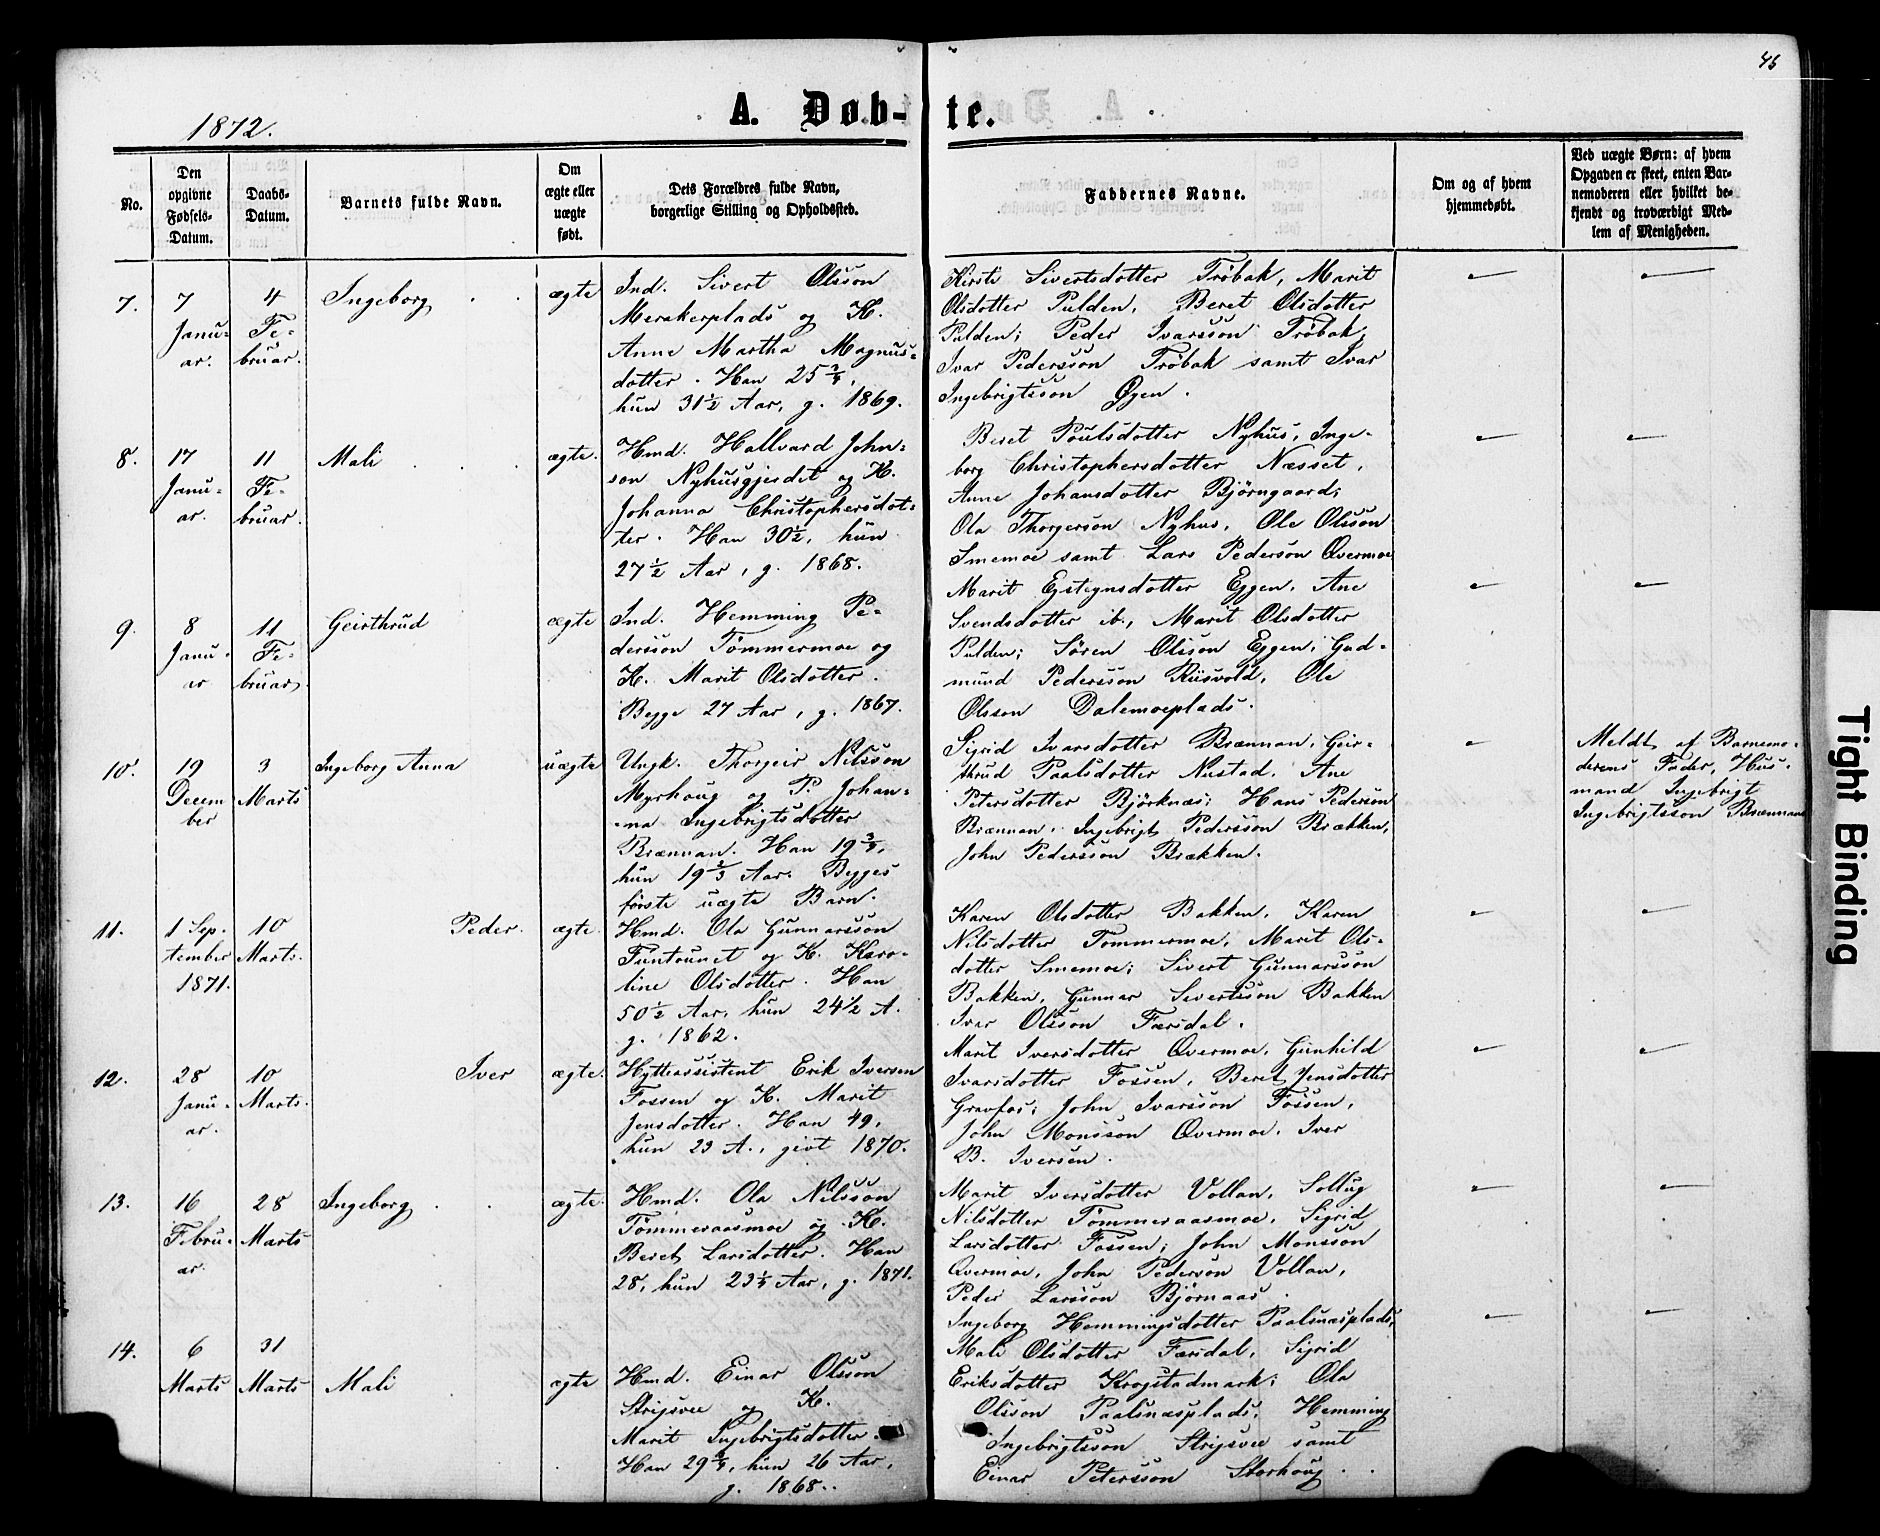 46
1872.
A. Døb-te.
No.
Den opgivne Fødsels-Datum.
Daabs-Datum.
Barnets fulde Navn.
Om ægte eller uægte født.
Dets Forældres fulde Navn, borgerlige Stilling og Opholdssted.
Faddernes Navne.
Om og af hvem hjemmedøbt.
Ved uægte Børn: af hvem Opgaven er skeet, enten Barnemoderen eller hvilket bekjendt og troværdigt Medlem af Menigheden.
7. 7 Janu-ar. 4 Fe-bruar. Ingeborg ægte
Ind. Sivert Olsson
Merakerplads og K.
Anne Martha Magnus-
dotter. Han 25 3/4,
hun 31 1/2 Aar, g. 1869.
Kirsti Sivertsdotter Tröbak, Marit
Olsdotter Pulden, Beret Olsdotter
Pulden; Peder Ivarsson Tröbak,
Ivar Pedersson Tröbak samt Ivar
Ingebrigtsson Øyen.
8. 17 Janu-ar. 11 Fe-bruar. Mali ægte.
Hmd. Hallvard John-
son Nyhusgjerdet og K.
Johanna Christophersdot-
ter. Han 30 1/2, hun
27 1/2 Aar, g. 1868.
Beret Poulsdotter Nyhus, Inge-
borg Christophersdotter Næsset,
Anne Johansdotter Björngaard;
Ola Thorgerson Nyhus, Ole Olsson
Smemoe samt Lars Pederson Overmoe
9. 8 Janu-ar 11 Fe-bruar. Geirthrud ægte
Ind. Hemming Pe-
dersson Tömmermoe og
K. Marit Olsdotter.
Begge 27 Aar, g. 1867.
Marit Eysteynsdotter Eggen, Ane
Svendsdotter ib., Marit Olsdotter
Pulden; Sören Olsson Eggen, Gud-
mund Pedersson Riisvold, Ole
Olsson Dalemoeplads.
10. 19 Decem-ber 3 Marts Ingeborg Anna uægte
Ungk. Thorgeir Nilsson
Myrhoug og P. Johan-
na Ingebrigtsdotter
Brænnan. Han 19 3/4,
hun 19 2/3 Aar. Begges
förste uægte Barn.
Sigrid Ivarsdotter Brænnan, Geir-
thrud Paalsdotter Nustad, Ane
Petersdotter Björknæs; Hans Pederson
Brænnan, Ingebrigt Pedersson Brækken,
John Pedersson Brækken.
Meldt af Barnemo-
derens Fader, Hus-
mand Ingebrigt
Ingebrigtsson Brænnan
11. 1 Sep-tember 1871. 10 Marts. Peder. ægte.
Hmd. Ola Gunnarsson
Funtaunet og K. Karo-
line Olsdotter. Han
50 1/2 Aar, hun 24 1/2 A.
g. 1862.
Karen Olsdotter Bakken, Karen
Nilsdotter Tömmermoe, Marit Ols-
dotter Smemoe; Sivert Gunnarsson
Bakken, Gunnar Sivertsson Bakken
Ivar Olsson Færsdal.
12. 28 Janu-ar. 10 Marts. Iver ægte.
Hytteassistent Erik Iversen
Fossen og K. Marit
Jensdotter. Han 49,
hun 23 A., givt 1870.
Marit Iversdotter Overmoe, Gunhild
Ivarsdotter Fossen, Beret Jensdotter
Gravfos; John Ivarsson Fossen,
John Monsson Overmoe, Iver
B. Iversen.
13. 16 Febru-ar. 28 Marts Ingeborg ægte.
Hmd. Ola Nilsson
Tömmeraasmoe og K.
Beret Larsdotter. Han
28, hun 23 1/4 Aar, g. 1871.
Marit Iversdotter Vollan, Sollug
Nilsdotter Tömmeraasmoe, Sigrid
Larsdotter Fossen; John Monsson
Overmoe, John Pederson Vollan,
Peder Larsson Björnaas.
14. 6 Marts 31 Marts Mali ægte
Hmd. Einar Olsson
Strijsvee og K.
Marit Ingebrigtsdotter.
Han 29 3/4, hun 26 Aar,
g. 1868.
Ingeborg Hemmingsdotter Paalsnæsplads,
Mali Olsdotter Færsdal, Sigrid
Eriksdotter Krogstadmark; Ola
Olsson Paalsnæsplads, Hemming
Ingebrigtsson Strijsvee samt
Einar Petersson Storhoug.
Tight Binding